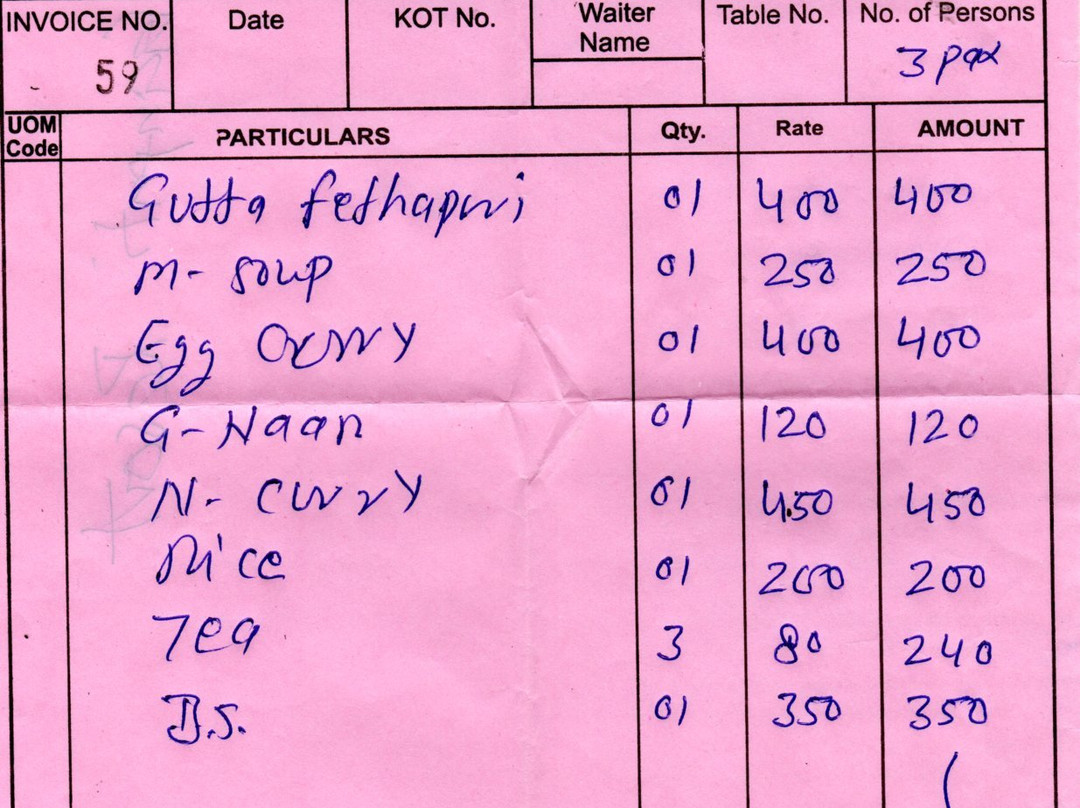 INVOICE NO. Date KOT No. Waiter Name Table No. No. of Persons
59 3 pax
UOM Code PARTICULARS Qty. Rate AMOUNT
Gutta fethapuri 01 400 400
M- Soup 01 250 250
Egg Curry 01 400 400
G- Naan 01 120 120
N- Curry 01 450 450
Rice 01 200 200
Tea 3 80 240
B.S. 01 350 350